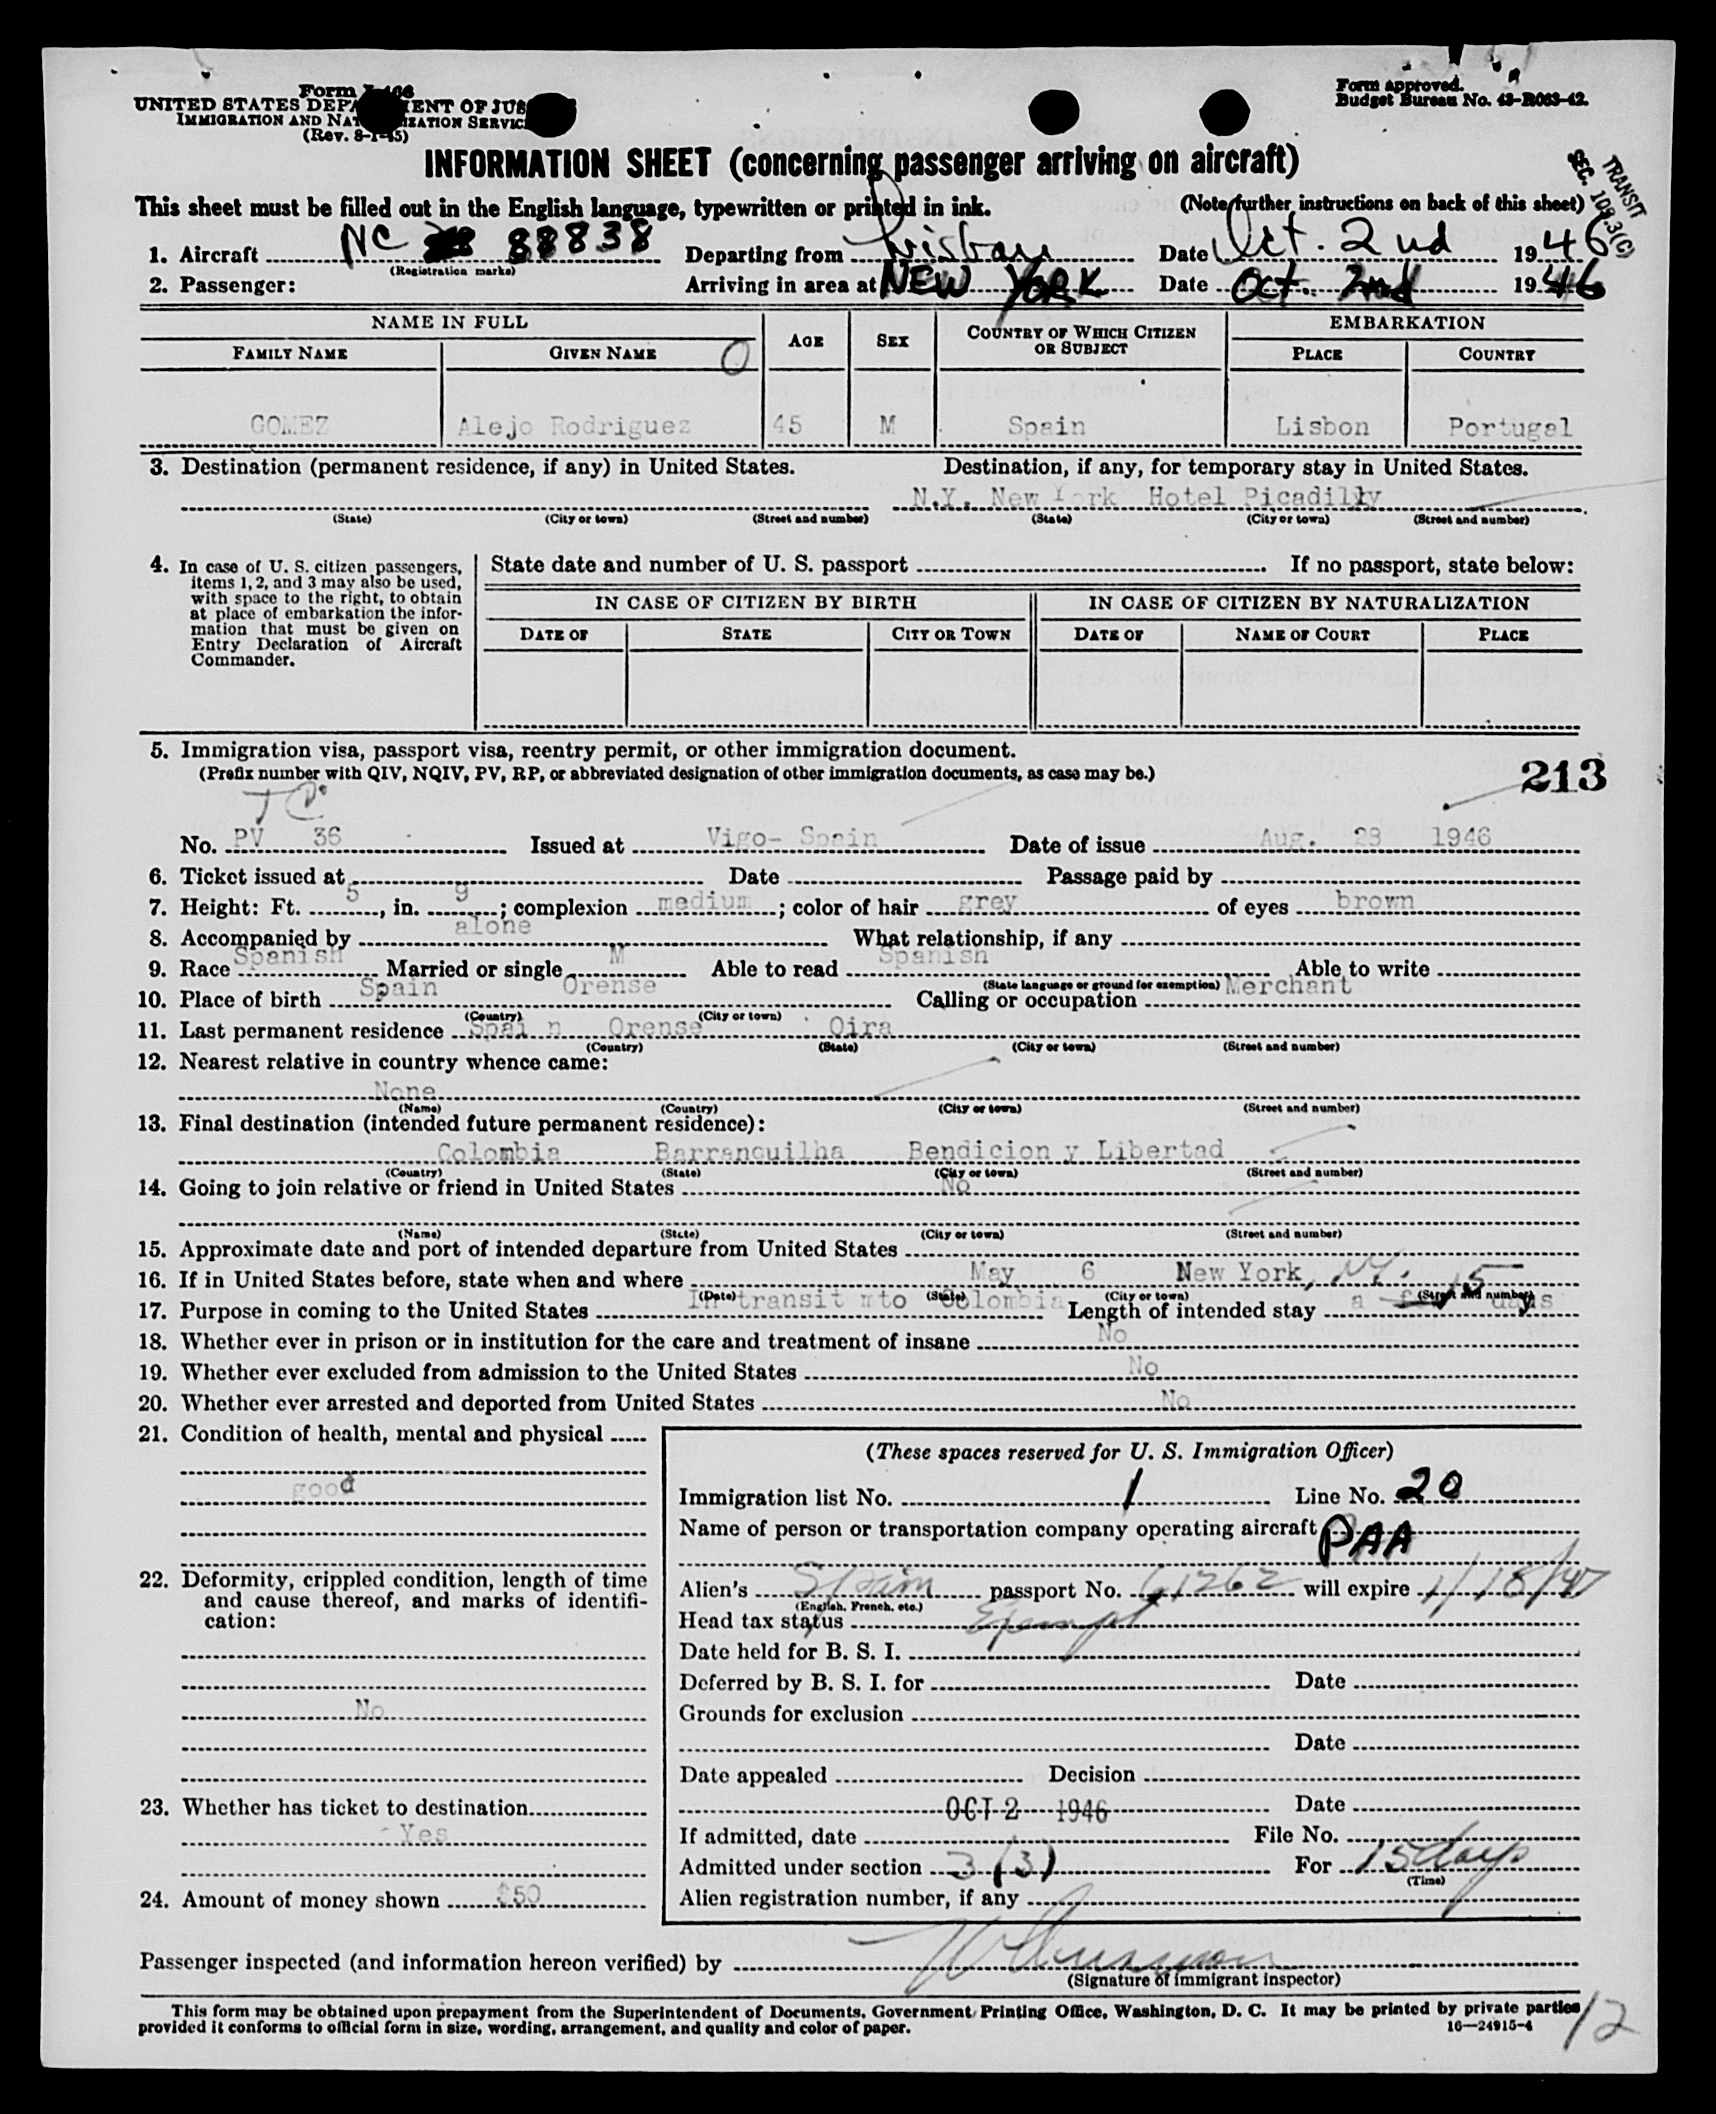 Form I-466
UNITED STATES DEPARTMENT OF JUSTICE
IMMIGRATION AND NATURALIZATION SERVICE
(Rev. 8-1-45)
Form approved.
Budget Bureau No. 43-R063-42.
INFORMATION SHEET (concerning passenger arriving on aircraft)
TRANSIT
SEC. 103.3(C)
This sheet must be filled out in the English language, typewritten or printed in ink. (Note further instructions on back of this sheet)
1. Aircraft NC 88838 Departing from Lisbon Date Oct. 2nd 1946
(Registration marks)
2. Passenger: Arriving in area at NEW YORK Date Oct. 2nd 1946
NAME IN FULL AGE SEX COUNTRY OF WHICH CITIZEN OR SUBJECT EMBARKATION
FAMILY NAME GIVEN NAME PLACE COUNTRY
GOMEZ Alejo Rodriguez 45 M Spain Lisbon Portugal
3. Destination (permanent residence, if any) in United States. Destination, if any, for temporary stay in United States.
N.Y. New York Hotel Picadilly
(State) (City or town) (Street and number) (State) (City or town) (Street and number)
4. In case of U. S. citizen passengers, items 1, 2, and 3 may also be used, with space to the right, to obtain at place of embarkation the information that must be given on Entry Declaration of Aircraft Commander.
State date and number of U. S. passport If no passport, state below:
IN CASE OF CITIZEN BY BIRTH IN CASE OF CITIZEN BY NATURALIZATION
DATE OF STATE CITY OR TOWN DATE OF NAME OF COURT PLACE
5. Immigration visa, passport visa, reentry permit, or other immigration document.
(Prefix number with QIV, NQIV, PV, RP, or abbreviated designation of other immigration documents, as case may be.)
213
No. PV 36 Issued at Vigo- Spain Date of issue Aug. 28 1946
6. Ticket issued at Date Passage paid by
7. Height: Ft. 5, in. 9; complexion medium; color of hair grey of eyes brown
8. Accompanied by alone What relationship, if any
9. Race Spanish Married or single M Able to read Spanish Able to write
(State language or ground for exemption)
10. Place of birth Spain Orense Calling or occupation Merchant
(Country) (City or town)
11. Last permanent residence Spai n Orense Oira
(Country) (State) (City or town) (Street and number)
12. Nearest relative in country whence came:
None
(Name) (Country) (City or town) (Street and number)
13. Final destination (intended future permanent residence):
Colombia Barranquilha Bendicion y Libertad
(Country) (State) (City or town) (Street and number)
14. Going to join relative or friend in United States No
(Name) (State) (City or town) (Street and number)
15. Approximate date and port of intended departure from United States
16. If in United States before, state when and where May 6 New York, N.Y.
(Date) (State) (City or town) (Street and number)
17. Purpose in coming to the United States In transit mto Colombia Length of intended stay a few 15 days
18. Whether ever in prison or in institution for the care and treatment of insane No
19. Whether ever excluded from admission to the United States No
20. Whether ever arrested and deported from United States No
21. Condition of health, mental and physical
good
22. Deformity, crippled condition, length of time and cause thereof, and marks of identification:
No
23. Whether has ticket to destination
Yes
24. Amount of money shown $50
(These spaces reserved for U. S. Immigration Officer)
Immigration list No. 1 Line No. 20
Name of person or transportation company operating aircraft PAA
Alien's Spain passport No. 61262 will expire 1/18/47
(English, French, etc.)
Head tax status Exempt
Date held for B. S. I.
Deferred by B. S. I. for Date
Grounds for exclusion
Date
Date appealed Decision
OCT 2 1946 Date
If admitted, date File No.
Admitted under section 3 (3) For 15 days
(Time)
Alien registration number, if any
Passenger inspected (and information hereon verified) by
(Signature of immigrant inspector)
This form may be obtained upon prepayment from the Superintendent of Documents, Government Printing Office, Washington, D. C. It may be printed by private parties
provided it conforms to official form in size, wording, arrangement, and quality and color of paper.
16—24915-4
12